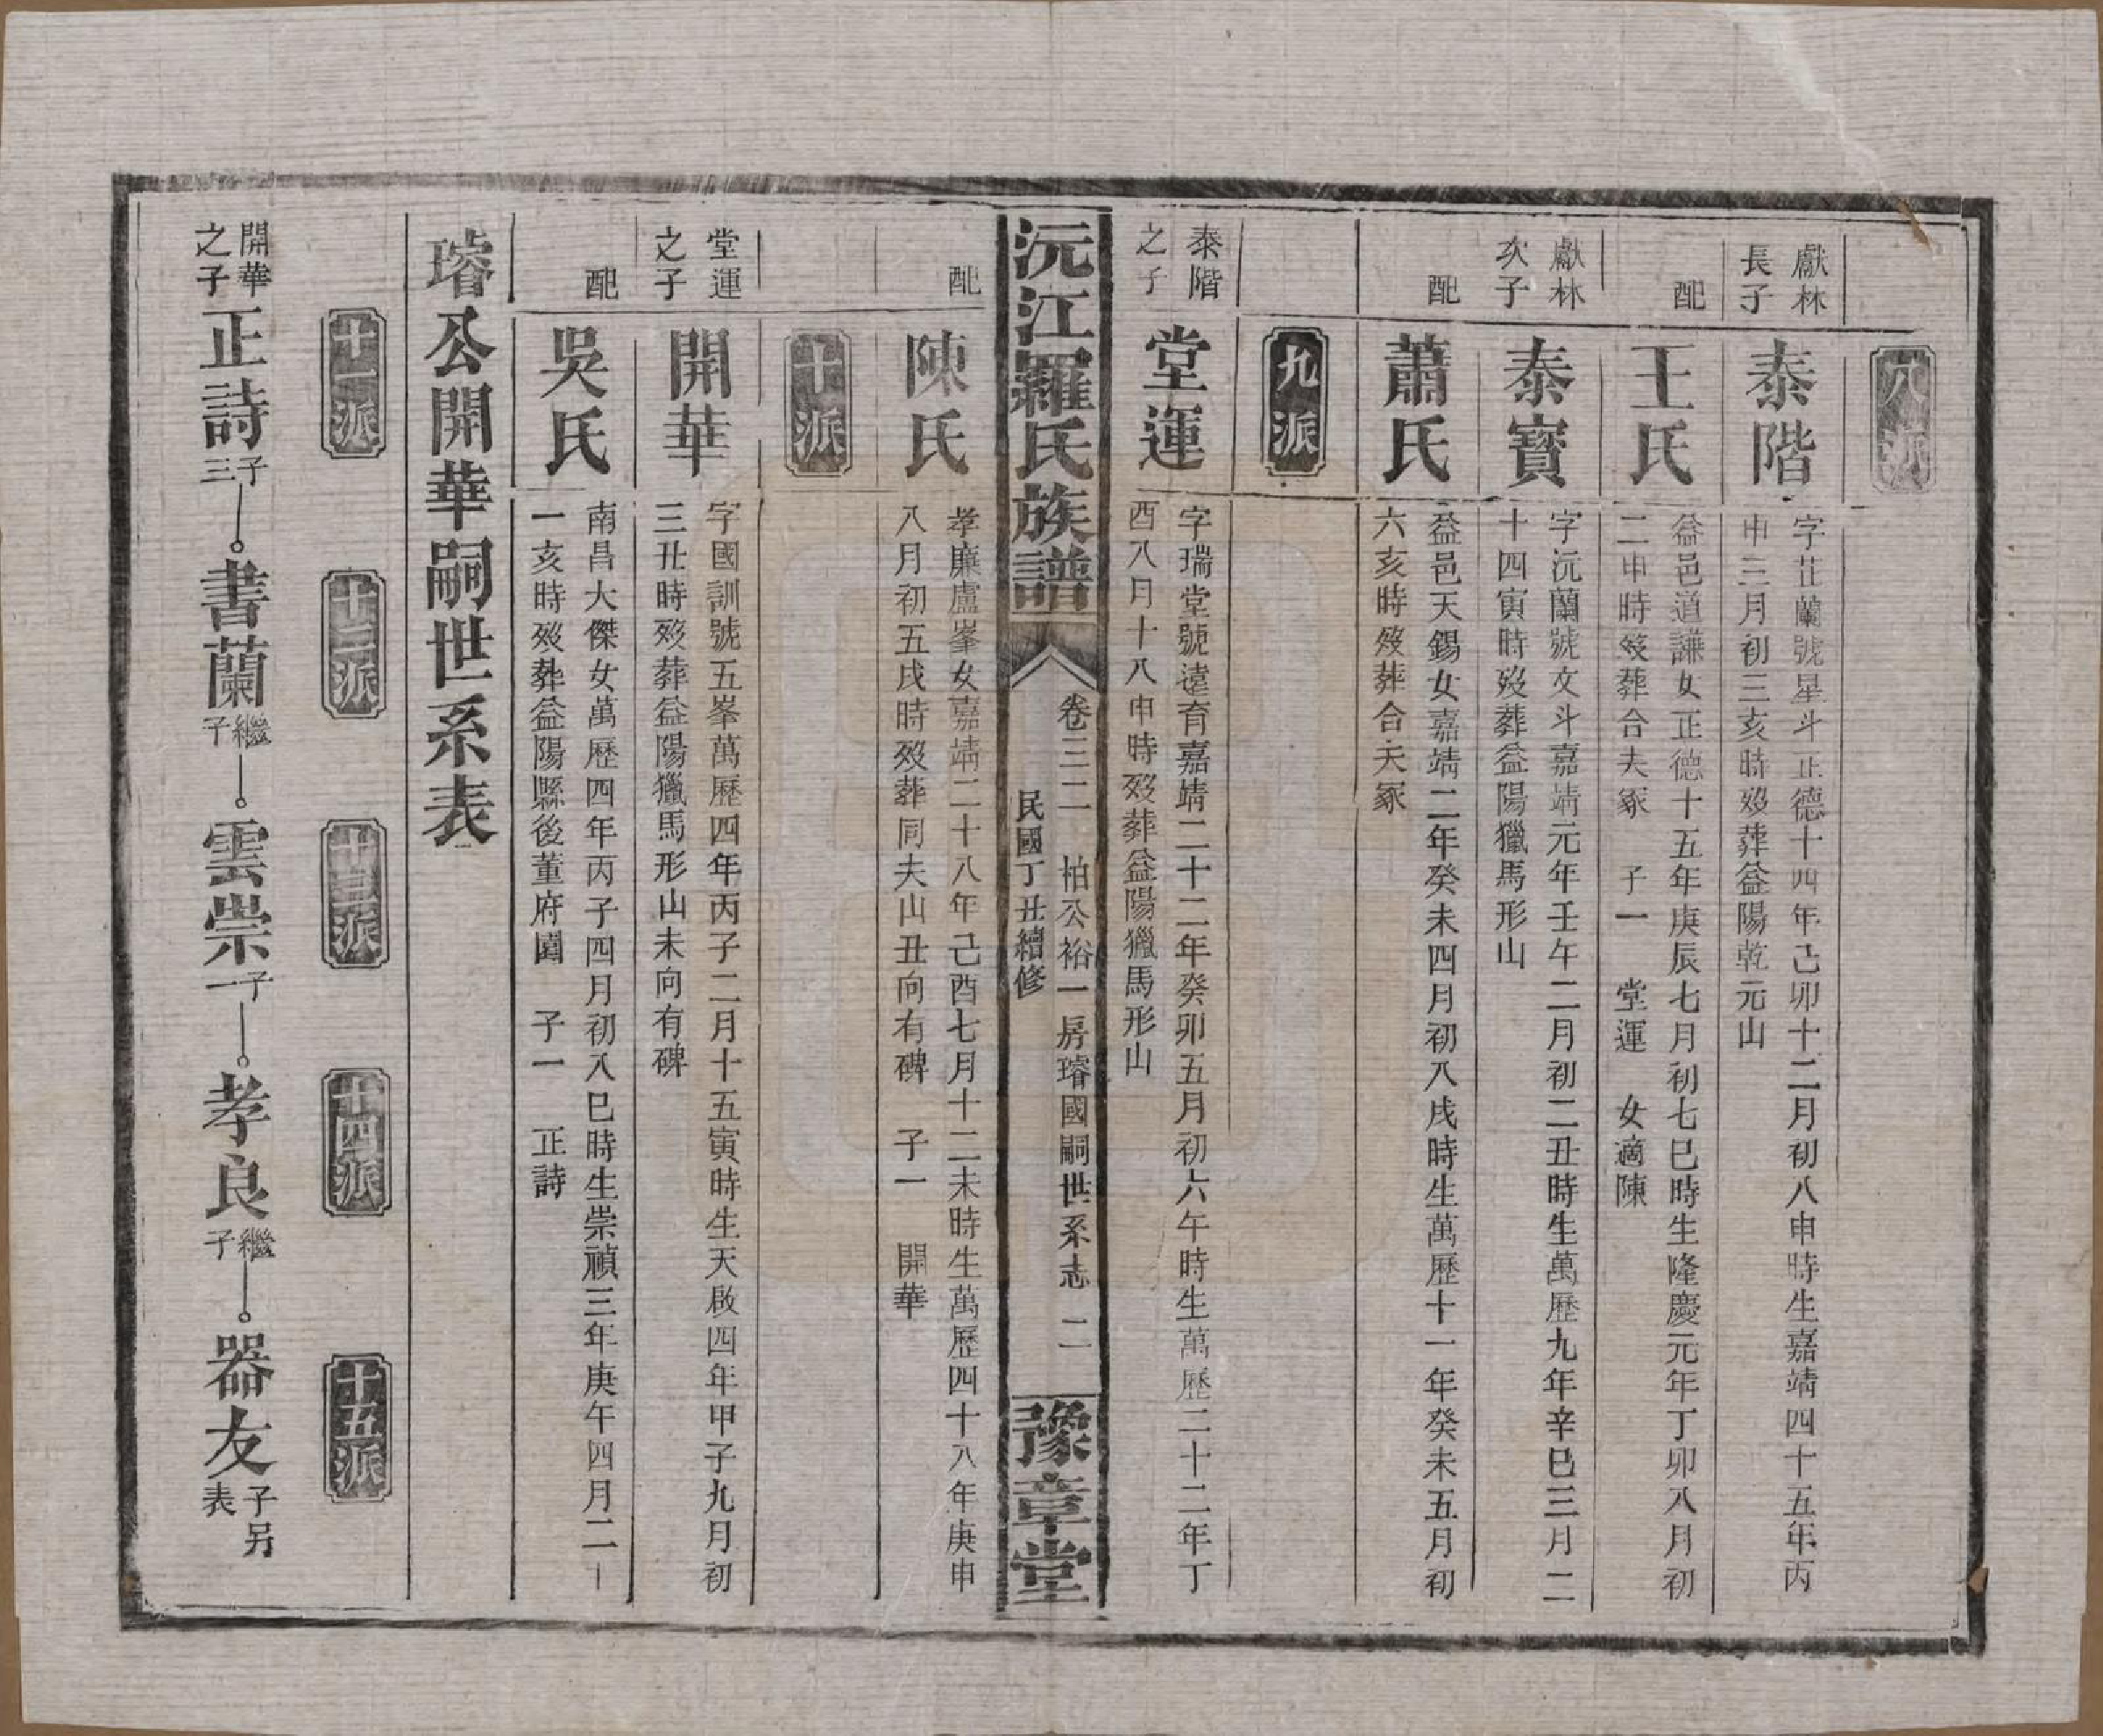 八派
獻林
長子
泰階
字茳蘭號星斗正德十四年己卯十二月初八申時生嘉靖四十五年丙
申三月初三亥時歿葬益陽乾元山
配
王氏
益邑道謙女正德十五年庚辰七月初七巳時生隆慶元年丁卯八月初
二申時歿葬合夫冢 子一 堂運 女適陳
獻林
次子
泰寶
字沅蘭號文斗嘉靖元年壬午二月初二丑時生萬歷九年辛巳三月二
十四寅時歿葬益陽獵馬形山
配
蕭氏
益邑天錫女嘉靖二年癸未四月初八戌時生萬歷十一年癸未五月初
六亥時歿葬合夫冢
九派
泰階
之子
堂運
字瑞堂號遠育嘉靖二十二年癸卯五月初六午時生萬歷二十二年丁
酉八月十八申時歿葬益陽獵馬形山
沅江羅氏族譜
卷三二 柏公裕一房璿國嗣世系志 二
民國丁丑續修
豫章堂
配
陳氏
孝廉盧峯女嘉靖二十八年己酉七月十二未時生萬歷四十八年庚申
八月初五戌時歿葬同夫山丑向有碑 子一 開華
十派
堂運
之子
開華
字國訓號五峯萬歷四年丙子二月十五寅時生天啟四年甲子九月初
三丑時歿葬益陽獵馬形山未向有碑
配
吳氏
南昌大傑女萬歷四年丙子四月初八巳時生崇禎三年庚午四月二十
一亥時歿葬益陽縣後董府園 子一 正詩
璿公開華嗣世系表
十一派 十二派 十三派 十四派 十五派
開華
之子
正詩 子三 書蘭 繼子 雲崇 子一 孝良 繼子 器友 子另表